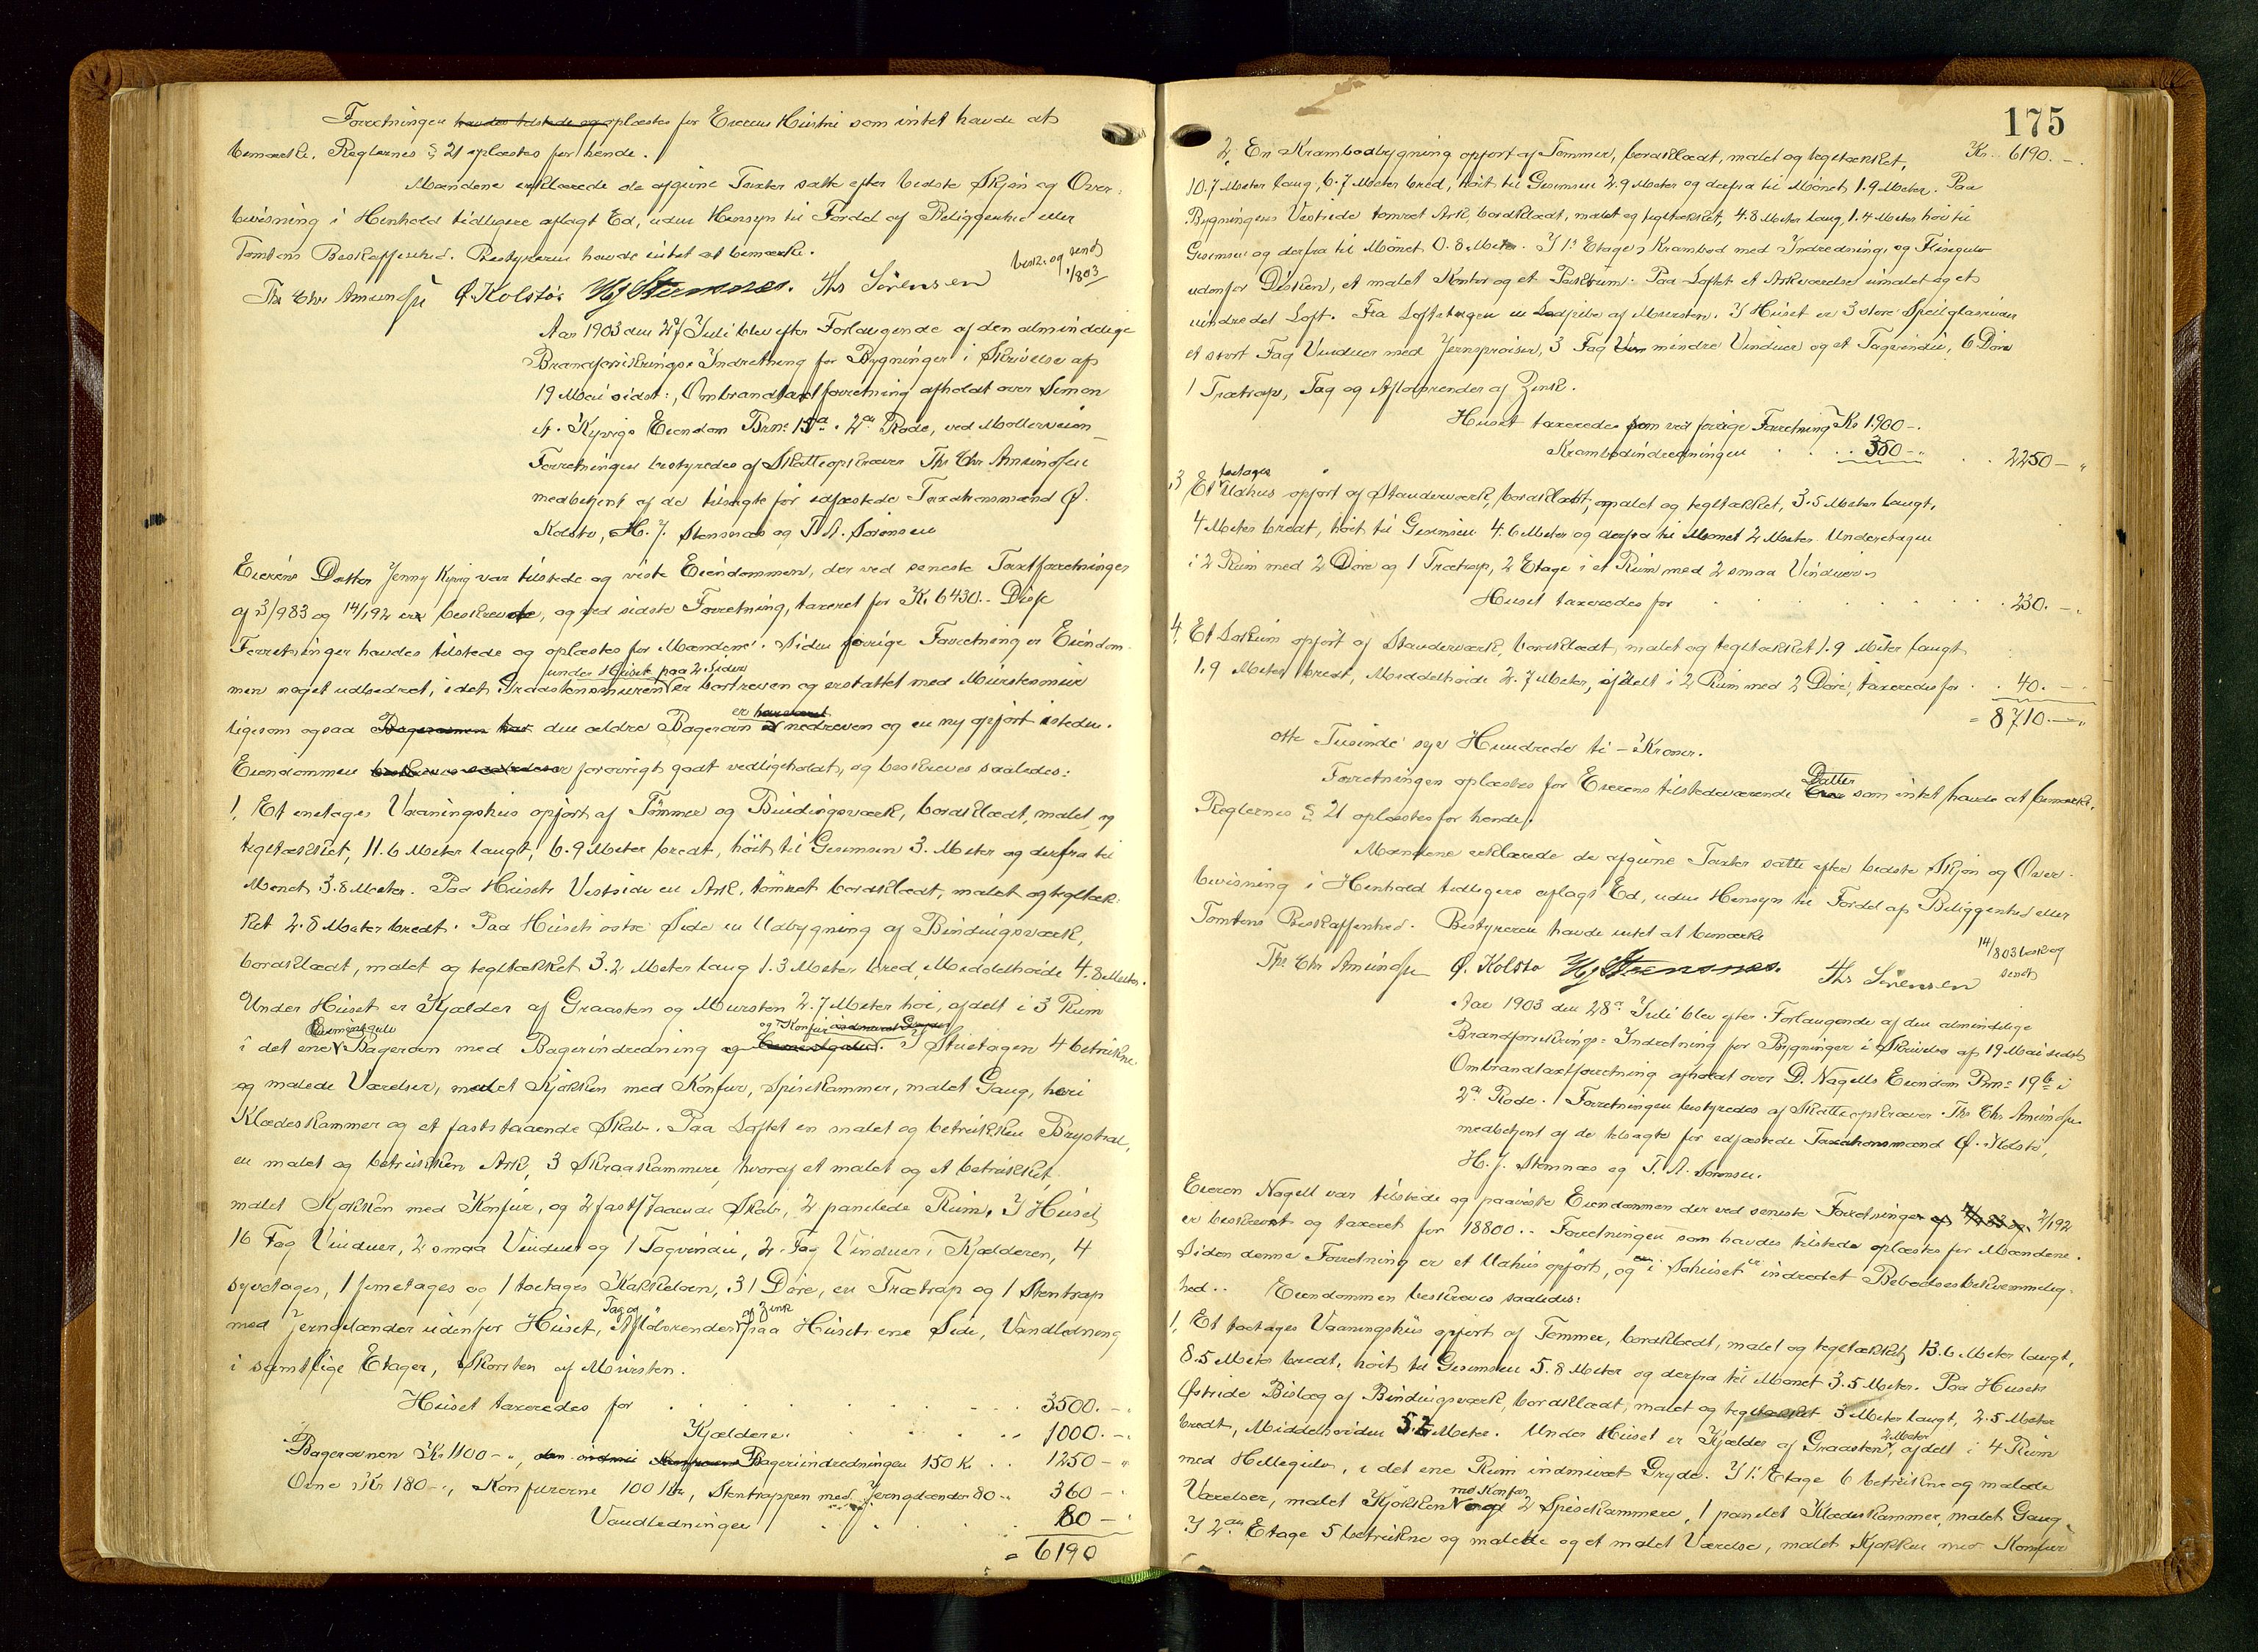 Forretningen havdes tilstede og oplæstes for Eierens Hustru som intet havde at
bemærke. Reglernes § 21 oplæstes for hende.
Mændene erklærede de afgivne Taxter satte efter bedste Skjøn og Over-
bevisning i Henhold tidligere aflagt Ed, uden Hensyn til Fordel af Beliggenhed eller
Tomtens Beskaffenhed. Bestyreren havde intet at bemærke.
beskr. og sendt
1/8 03
Ths Chr Amundsen O. Kolstø HJ Stensnes. Ths Sörensen
Aar 1903 den 28/ Juli blev efter Forlangende af den almindelige
Brandforsikrings-Indretning for Bygninger i Skrivelse af
19 Mai sidst:, Ombrandtaxtforretning afholdt over Simon
A. Kyvigs Eiendom Brn: 15a. 2den Rode, ved Mølleveien
Forretningen bestyredes af Skatteopkræver Ths Chr Amundsen
medbetjent af de tilsagte før edfæstede Taxationsmænd O.
Kolstø, H. J. Stensnæs og T. A. Sørensen
Eierens Datter Jenny Kyvig var tilstede og viste Eiendommen, der ved seneste Taxtforretninger
af 3/9 83 og 14/1 92 er beskrevne, og ved sidste Forretning, taxeret for Kr 6430.- Disse
Forretninger havdes tilstede og oplæstes for Mændene. Siden forrige Forretning er Eiendom-
under Huset paa 2 Sider
men noget udbedret, idet Graastensmuren er bortreven og erstattet med Murstensmur
er har været
ligesom ogsaa Bagerovnen har den ældre Bagerovn nedreven og en ny opført isteden.
Eiendommen beskrives saaledes er forøvrigt godt vedligeholdt, og beskrives saaledes:
1, Et enetages Vaaningshus opført af Tømmer og Bindingsværk, bordklædt, malet og
tegltækket, 11.6 Meter langt, 6.9 Meter bredt, høit til Gesimsen 3. Meter og derfra til
Mønet 3.8 Meter. Paa Husets Vestside en Ark, tømret bordklædt, malet og tegltæk-
ket 2.8 Meter bredt. Paa Husets østre Side en Udbygning af Bindingsværk,
bordklædt, malet og tegltækket 3.2 Meter lang 1.3 Meter bred, Middelhøide 4.8 Meter.
Under Huset er Kjælder af Graasten og Mursten 2.7 Meter høi, afdelt i 3 Rum
Cementgulv og Komfur indmuret Gryde
i det ene Bagerovn med Bagerindredning og Cementgulv. I Stuetagen 4 betrukne
og malede Værelser, malet Kjøkken med Komfur, Spisekammer, malet Gang, heri
Klædeskammer og et faststaaende Skab. Paa Loftet en malet og betrukken Brystsal,
en malet og betrukken Ark, 3 Skraakammere, hvoraf et malet og et betrukket,
malet Kjøkken med Komfur, og 2 faststaaende Skab, 2 panelede Rum. I Huset
16 Fag Vinduer, 2 smaa Vinduer og 1 Tagvindu, 2 Fag Vinduer i Kjælderen, 4
syvetages, 1 femetages og 1 toetages Kakkelovn, 31 Døre, en Trætrap og 1 Stentrap
Tag og af Zink
med Jerngelænder udenfor Huset, Afløbsrender paa Husets ene Side, Vandledning
i samtlige Etager, Skorsten af Mursten.
Huset taxeredes for 3500.-
Kjælderen 1000.-
Bagerovnen Kr 1100-, Bageriindredningen 150 Kr 1250-
Ovne Kr 180-, Komfurerne 100 Kr, Stentrappen med Jerngelænder 80.- 360-
Vandledningen 80-
= 6190
175
Kr. 6190.-
2, En Krambodbygning opført af Tømmer, bordklædt, malet og tegltækket,
10.7 Meter lang, 6.7 Meter bred, høit til Gesimsen 2.9 Meter og derfra til Mønet 1.9 Meter. Paa
Bygningens Vestside tømret Ark, bordklædt, malet og tegltækket, 4.8 Meter lang, 1.4 Meter høi til
Gesimsen og derfra til Mønet 0.8 Meter. I 1ste Etage Krambod med Indredning og Flisegulv
udenfor Disken, et malet Kontor og et Pakrum. Paa Loftet et Arkværelse umalet og et
uindredet Loft. Fra Loftetagen en Ladpibe af Mursten. I Huset er 3 store Speilglasruder
et stort Fag Vinduer med Jernsproiser, 3 Fag mindre Vinduer og et Tagvindu, 6 Døre
1 Trætrap, Tag og Afløbsrender af Zink.
Huset taxeredes som ved forrige Forretning Kr 1900-.
Krambodindredningen 350-. 2250-
toetages
3 Et Udhus opført af Standerværk, bordklædt, malet og tegltækket, 3.5 Meter langt,
4 Meter bredt, høit til Gesimsen 4.6 Meter og derfra til Mønet 2 Meter. Underetagen
i 2 Rum med 2 Døre og 1 Trætrap, 2 Etage i et Rum med 2 smaa Vinduer
Huset taxeredes for 230.-
4, Et Lokum opført af Standerværk, bordklædt, malet og tegltækket 1.9 Meter langt
1,9 Meter bredt, Middelhøide 2.7 Meter, afdelt i 2 Rum med 2 Døre, taxeredes for 40.-
= 8710.-
otte Tusinde syv Hundrede ti - Kroner.
Datter
Forretningen oplæstes for Eierens tilstedeværende som intet havde at bemærke.
Reglernes § 21 oplæstes for hende.
Mændene erklærede de afgivne Taxter satte efter bedste Skjøn og Over-
bevisning i Henhold tidligere aflagt Ed, uden Hensyn til Fordel af Beliggenhed eller
Tomtens Beskaffenhed. Bestyreren havde intet at bemærke
14/8 03 besk og
sendt
Ths Chr Amundsen O. Kolstø HJ Stensnes. Ths Sörensen
Aar 1903 den 28de Juli blev efter Forlangende af den almindelige
Brandforsikrings-Indretning for Bygninger i Skrivelse af 19 Mai sidst
Ombrandtaxtforretning afholdt over D. Nagells Eiendom Brn: 19b i
2den Rode. Forretningen bestyredes af Skatteopkræver Ths Chr Amundsen
medbetjent af de tilsagte før edfæstede Taxationsmænd O. Kolstø,
H. J. Stensnæs og T. A. Sørensen.
Eieren Nagell var tilstede og paaviste Eiendommen der ved seneste Forretning 2/1 92
er beskrevet og taxeret for 18800.- Forretningen som havdes tilstede oplæstes for Mændene.
Siden denne Forretning er et Udhus opført, og i Søhuset er indredet Beboelsesbekvemmelig-
hed.. Eiendommen beskrives saaledes:
1, Et toetages Vaaningshus opført af Tømmer, bordklædt, malet og tegltækket, 13.6 Meter langt,
8.5 Meter bredt, høit til Gesimsen 5.8 Meter og derfra til Mønet 3.5 Meter. Paa Husets
Østside Bislag af Bindingsværk, bordklædt, malet og tegltækket 3 Meter langt, 2.5 Meter
2 Meter
bredt, Middelhøiden 5.2 Meter. Under Huset er Kjælder af Graasten, afdelt i 4 Rum
med Hellegulv, i det ene Rum indmuret Gryde. I 1ste Etage 6 betrukne og malede
med Komfur
Værelser, malet Kjøkken og 2 Spisekammere, 1 panelet Klædeskammer, malet Gang.
I 2den Etage 5 betrukne og malede og et malet Værelse, malet Kjøkken med Komfur